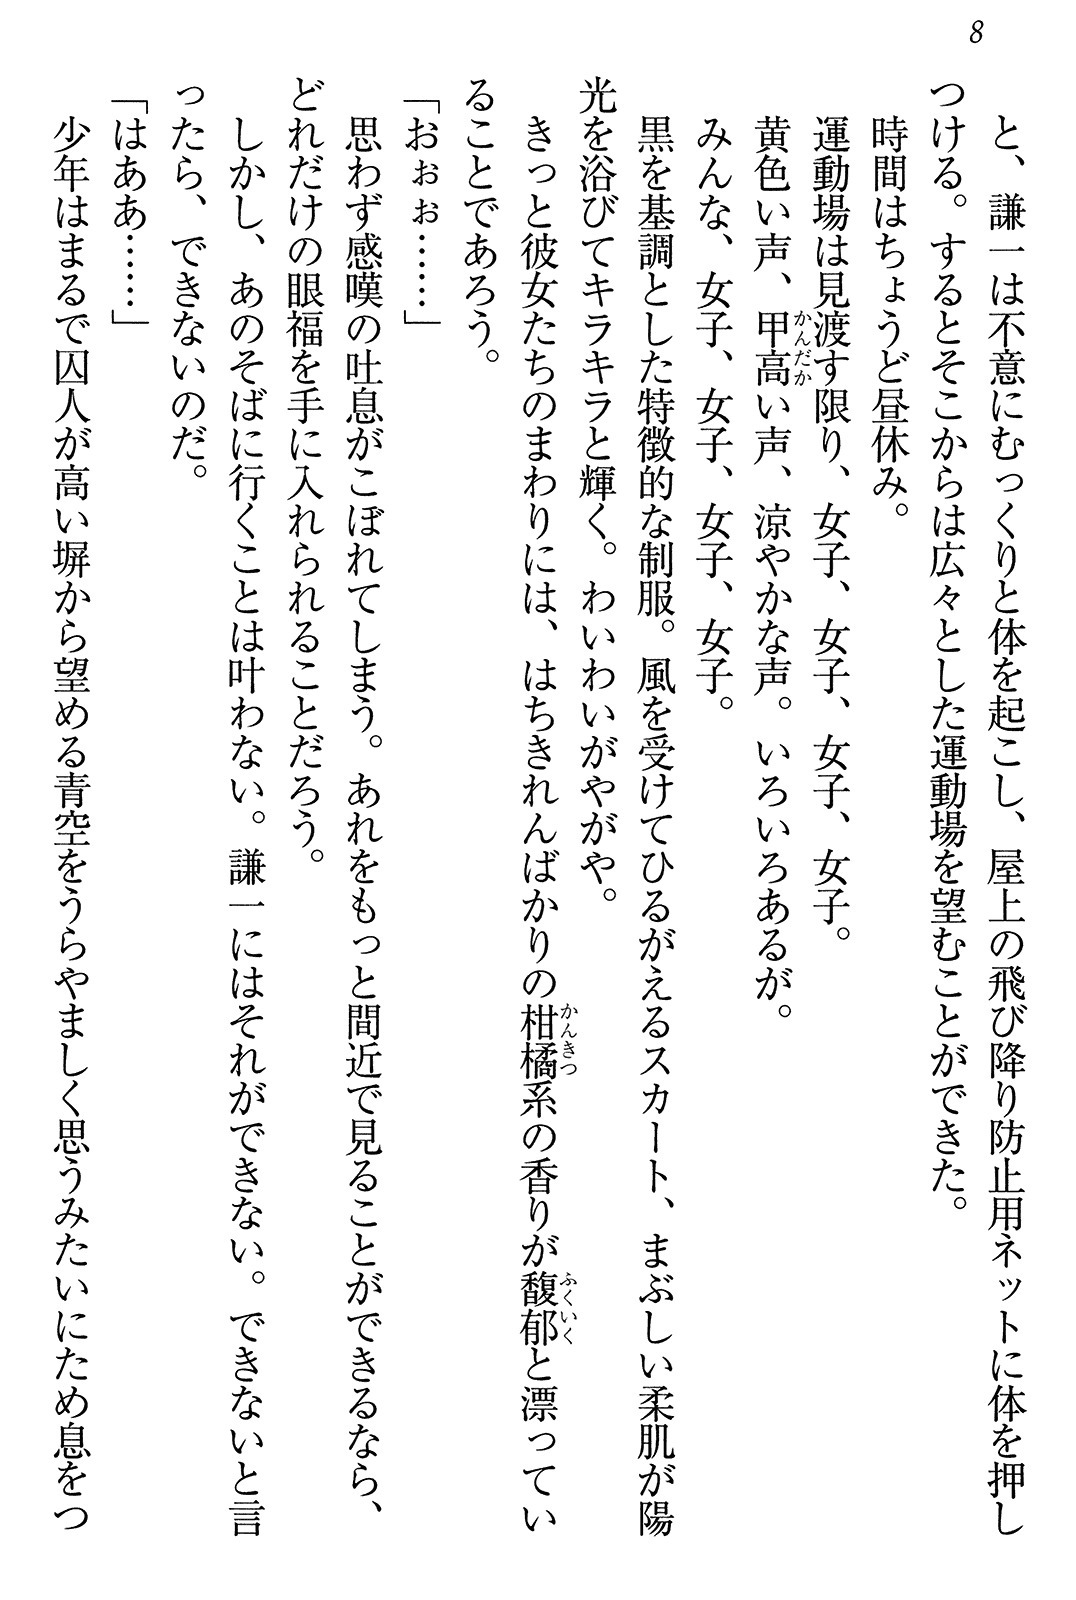 8
と、謙一は不意にむっくりと体を起こし、屋上の飛び降り防止用ネットに体を押し
つける。するとそこからは広々とした運動場を望むことができた。
時間はちょうど昼休み。
運動場は見渡す限り、女子、女子、女子、女子。
黄色い声、甲高い声、涼やかな声。いろいろあるが。
かんだか
みんな、女子、女子、女子、女子。
黒を基調とした特徴的な制服。風を受けてひるがえるスカート、まぶしい柔肌が陽
光を浴びてキラキラと輝く。わいわいがやがや。
きっと彼女たちのまわりには、はちきれんばかりの柑橘系の香りが馥郁と漂ってい
かんきつ
ふくいく
ることであろう。
「おぉぉ……」
思わず感嘆の吐息がこぼれてしまう。あれをもっと間近で見ることができるなら、
どれだけの眼福を手に入れられることだろう。
しかし、あのそばに行くことは叶わない。謙一にはそれができない。できないと言
ったら、できないのだ。
「はああ……」
少年はまるで囚人が高い塀から望める青空をうらやましく思うみたいにため息をつ